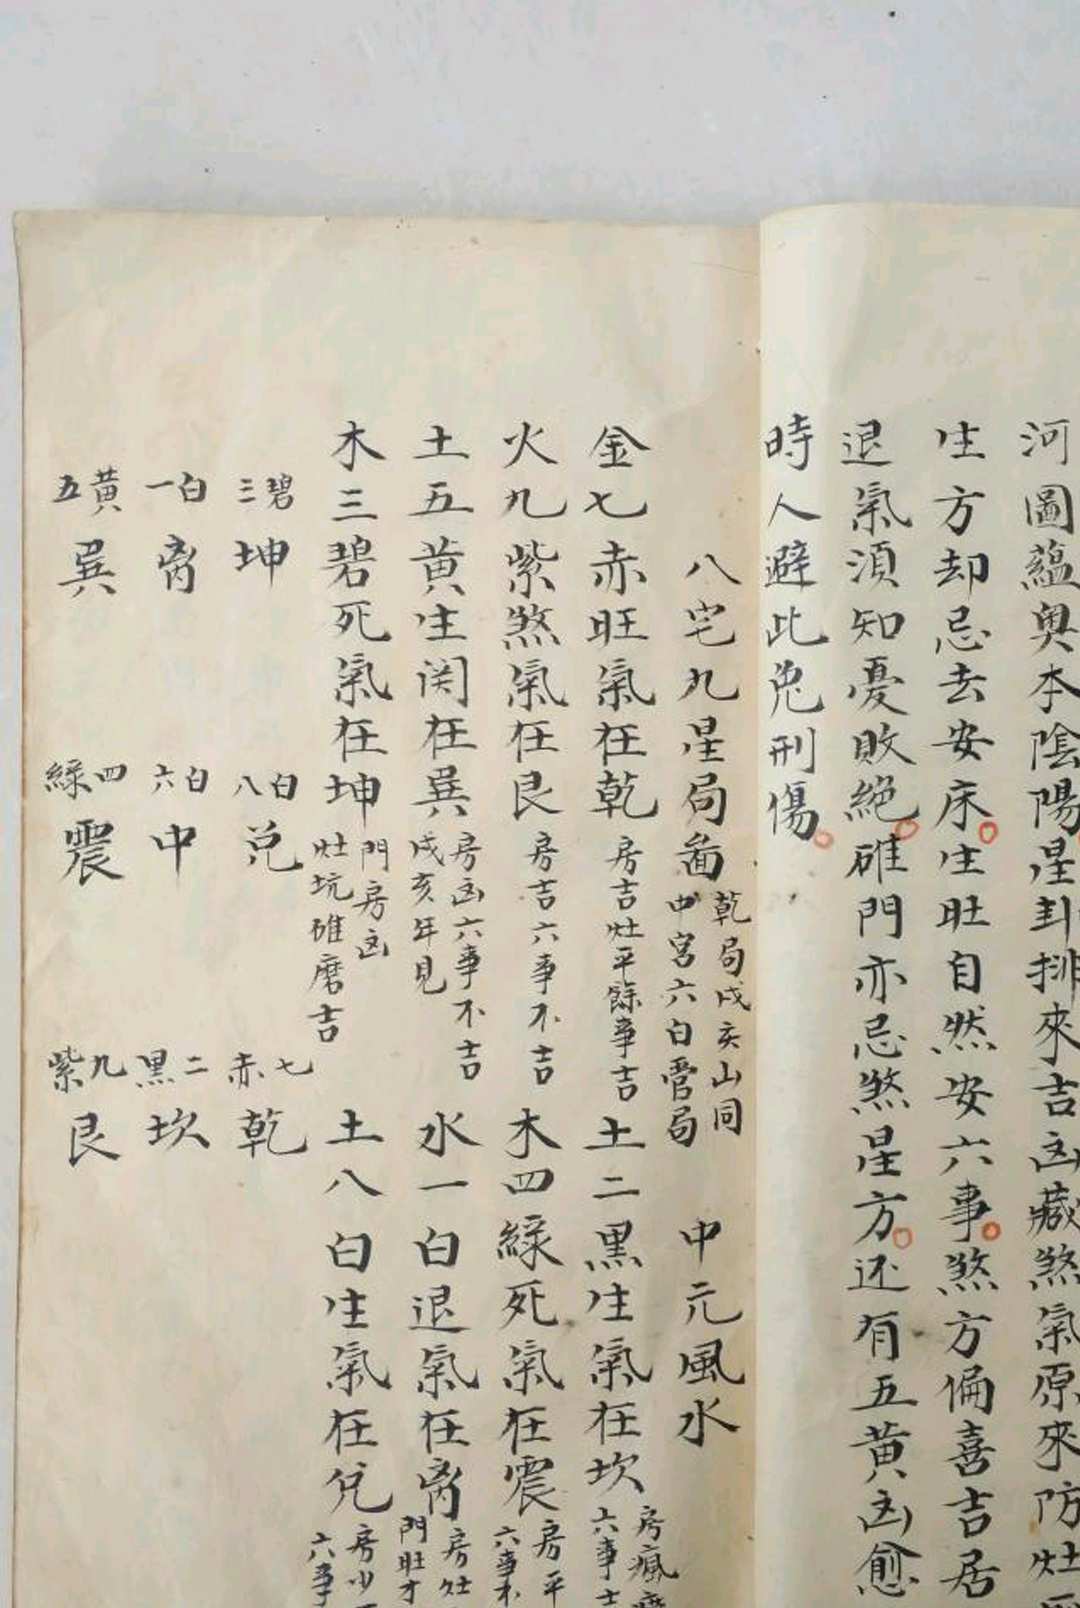 河圖蘊奥本陰陽星卦排來吉凶藏煞氣原來防灶
生方却忌去安床生旺自然安六事煞方偏喜吉居
退氣須知憂敗絕碓門亦忌煞星方还有五黄凶愈
時人避此免刑傷
八宅九星局畨
乾局戌亥山同
中宮六白管局
中元風水
金七赤旺氣在乾
房吉灶平餘事吉
土二黑生氣在坎
房瘋
六事吉
火九紫煞氣在艮
房吉六事不吉
木四緑死氣在震
房平
六事不
土五黄生関在巽
房凶六事不吉
戌亥年見
水一白退氣在离
房灶
門旺才
木三碧死氣在坤
門房凶
灶坑碓磨吉
土八白生氣在兌
房少
六事
碧三
坤
白八
兌
七赤
乾
白一
离
白六
中
二黒
坎
黄五
巽
四緑
震
九紫
艮